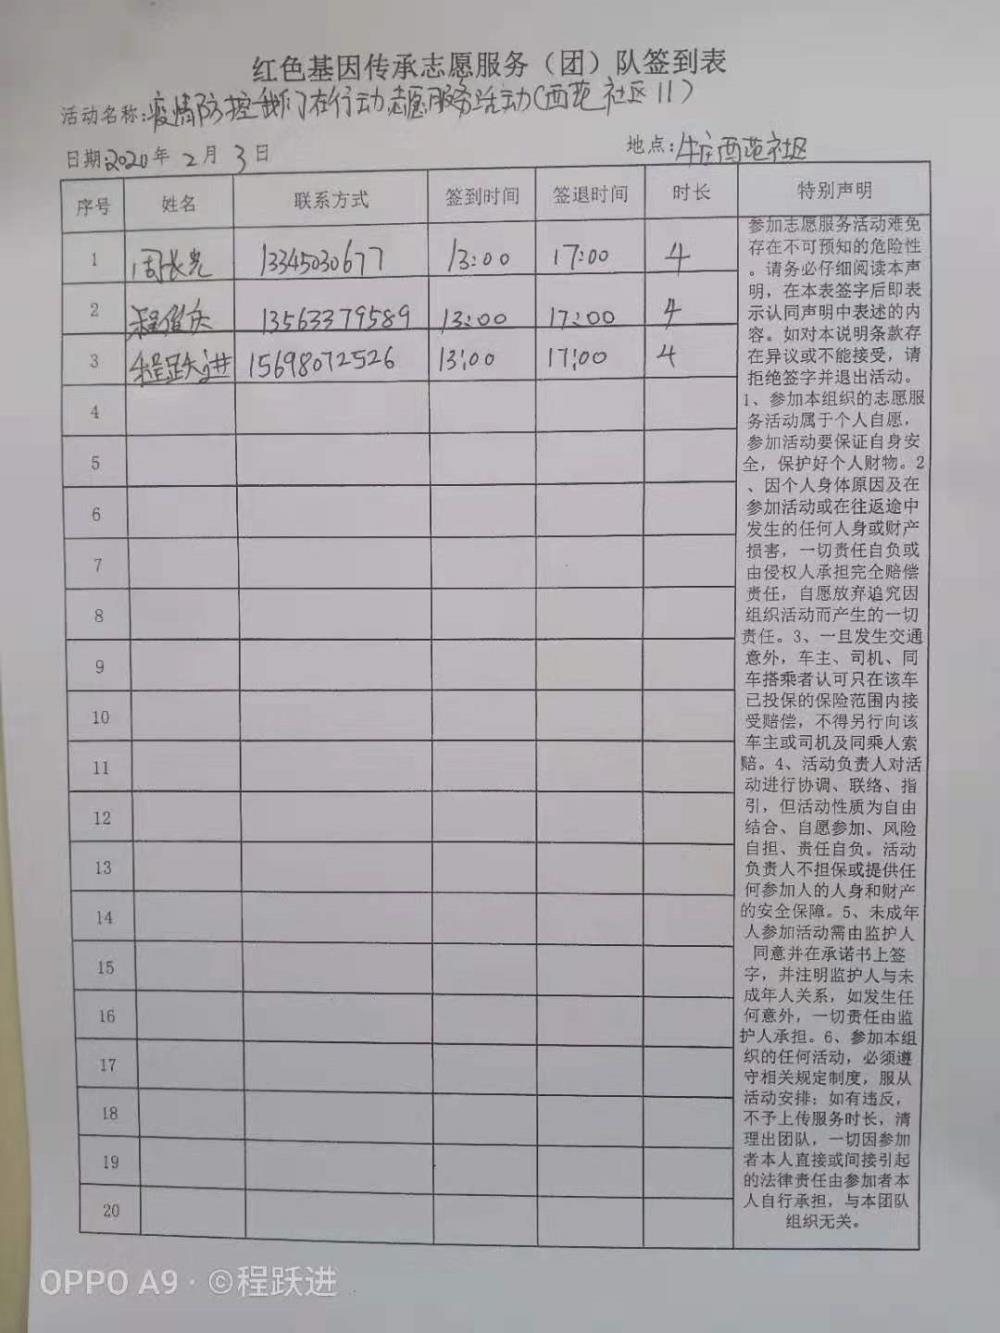 红色基因传承志愿服务（团）队签到表
活动名称：疫情防控我们在行动志愿服务活动（西苑社区11）
日期2020年2月3日 地点：牛庄西苑社区
序号 姓名 联系方式 签到时间 签退时间 时长 特别声明
1 周长光 13345030677 13:00 17:00 4
2 程俊庆 13563379589 13:00 17:00 4
3 程跃进 15698072526 13:00 17:00 4
4
5
6
7
8
9
10
11
12
13
14
15
16
17
18
19
20
参加志愿服务活动难免
存在不可预知的危险性
。请务必仔细阅读本声
明，在本表签字后即表
示认同声明中表述的内
容。如对本说明条款存
在异议或不能接受，请
拒绝签字并退出活动。
1、参加本组织的志愿服
务活动属于个人自愿，
参加活动要保证自身安
全，保护好个人财物。2
、因个人身体原因及在
参加活动或在往返途中
发生的任何人身或财产
损害，一切责任自负或
由侵权人承担完全赔偿
责任，自愿放弃追究因
组织活动而产生的一切
责任。3、一旦发生交通
意外，车主、司机、同
车搭乘者认可只在该车
已投保的保险范围内接
受赔偿，不得另行向该
车主或司机及同乘人索
赔。4、活动负责人对活
动进行协调、联络、指
引，但活动性质为自由
结合、自愿参加、风险
自担、责任自负。活动
负责人不担保或提供任
何参加人的人身和财产
的安全保障。5、未成年
人参加活动需由监护人
同意并在承诺书上签
字，并注明监护人与未
成年人关系，如发生任
何意外，一切责任由监
护人承担。6、参加本组
织的任何活动，必须遵
守相关规定制度，服从
活动安排；如有违反，
不予上传服务时长，清
理出团队，一切因参加
者本人直接或间接引起
的法律责任由参加者本
人自行承担，与本团队
组织无关。
OPPO A9 · ©程跃进